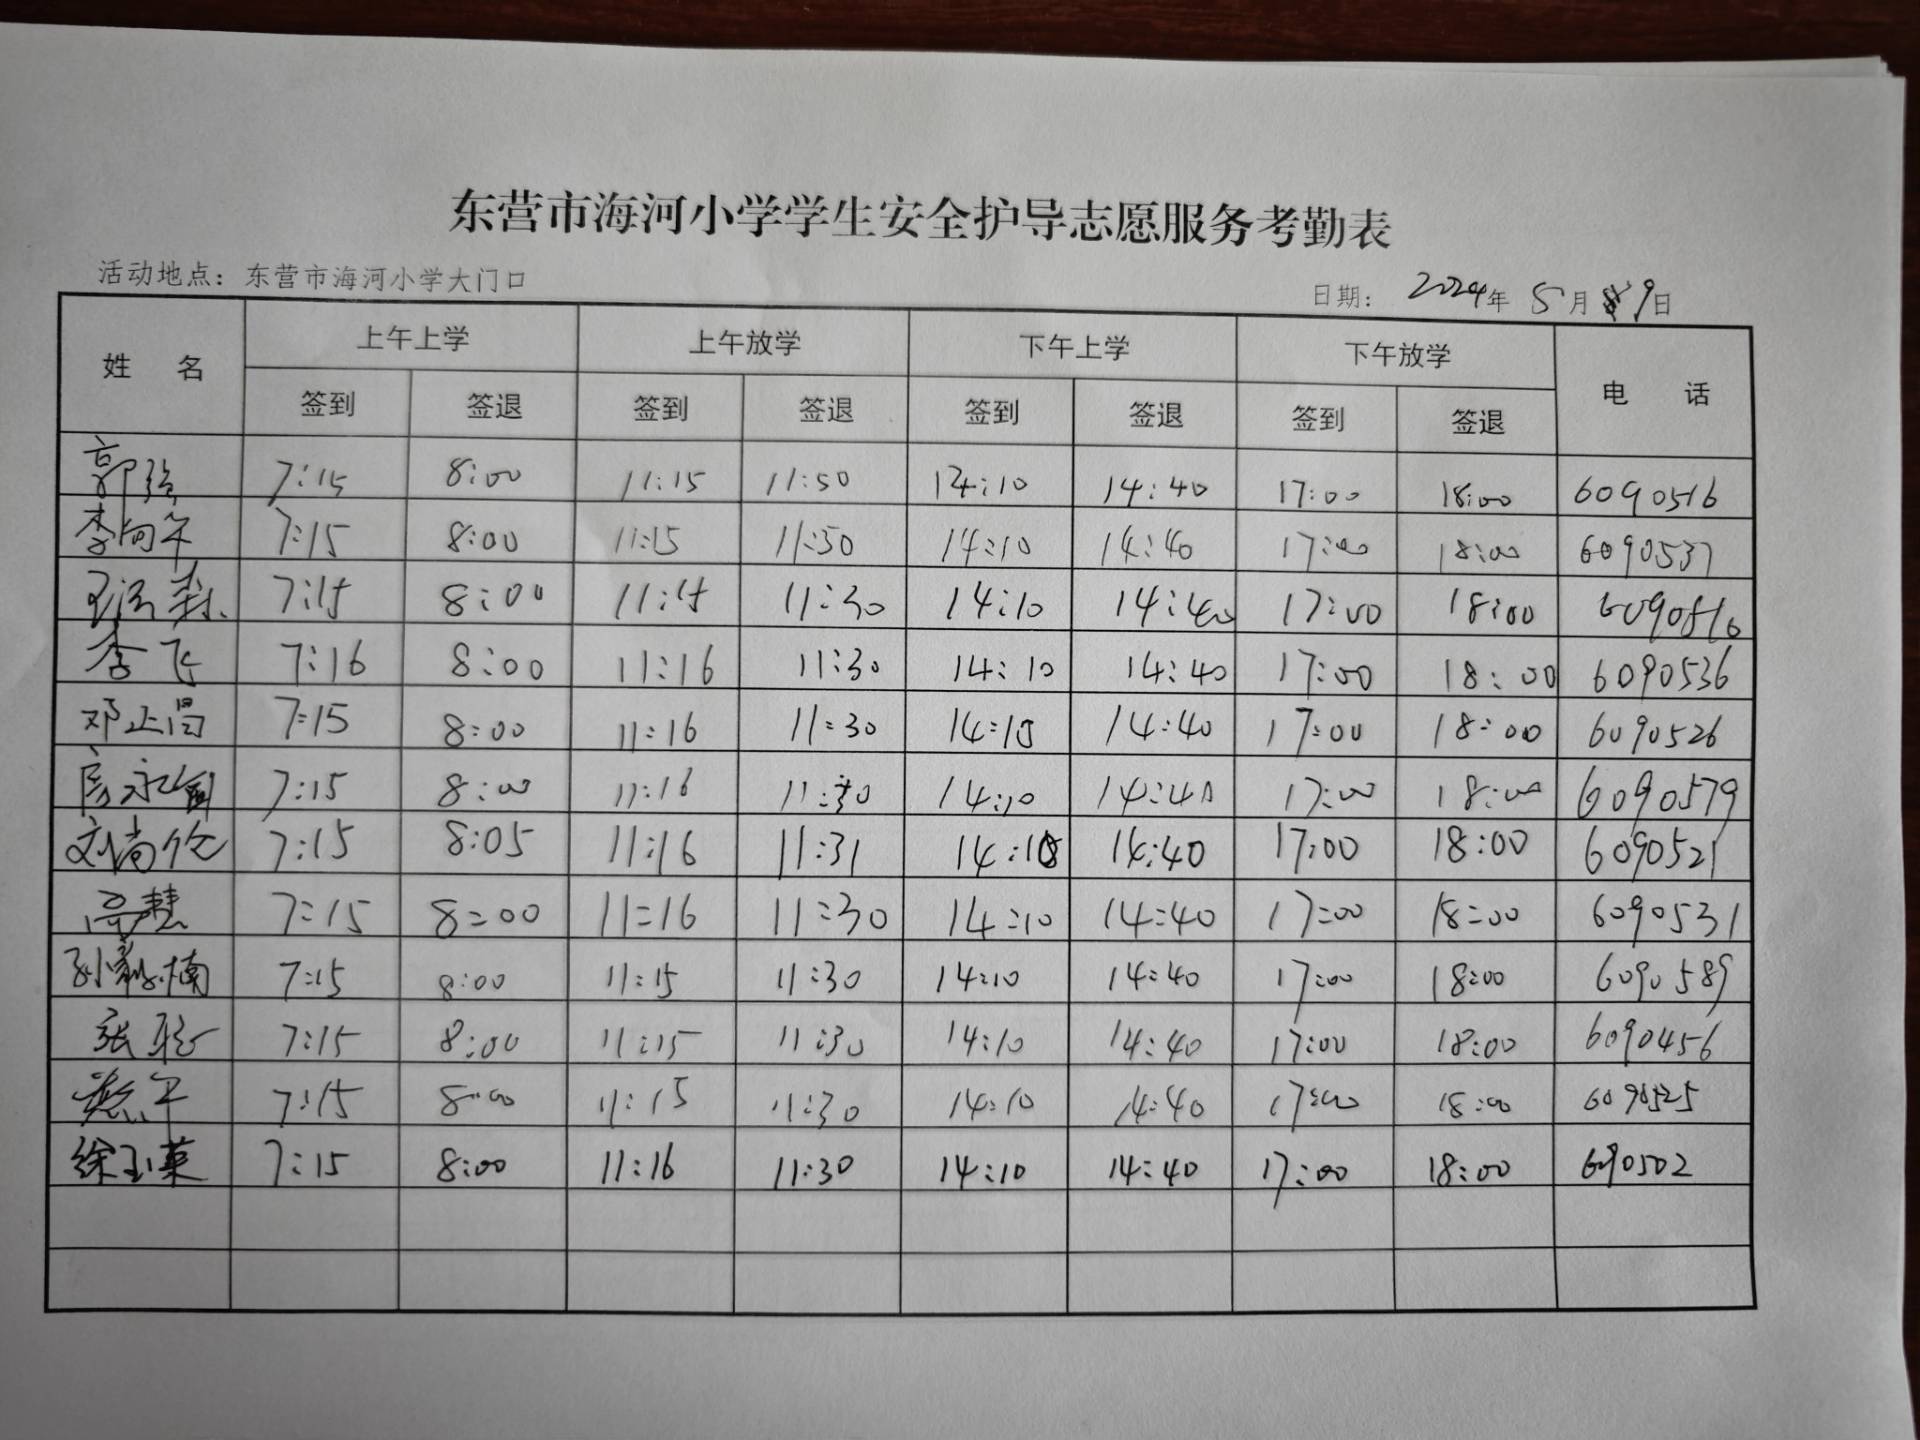 东营市海河小学学生安全护导志愿服务考勤表
活动地点：东营市海河小学大门口 日期： 2024年 5月 9日
姓 名 上午上学 上午放学 下午上学 下午放学 电 话
签到 签退 签到 签退 签到 签退 签到 签退
郭强 7:15 8:00 11:15 11:50 14:10 14:40 17:00 18:00 6090516
李向军 7:15 8:00 11:15 11:30 14:10 14:40 17:00 18:00 6090537
7:15 8:00 11:15 11:30 14:10 14:40 17:00 18:00 6090516
李飞 7:16 8:00 11:16 11:30 14:10 14:40 17:00 18:00 6090536
邓正昌 7:15 8:00 11:16 11:30 14:10 14:40 17:00 18:00 6090526
7:15 8:00 11:16 11:30 14:10 14:40 17:00 18:00 6090579
刘尚伦 7:15 8:05 11:16 11:31 14:10 14:40 17:00 18:00 6090521
高慧 7:15 8:00 11:16 11:30 14:10 14:40 17:00 18:00 6090531
7:15 8:00 11:15 11:30 14:10 14:40 17:00 18:00 6090589
张聪 7:15 8:00 11:15 11:30 14:10 14:40 17:00 18:00 6090456
7:15 8:00 11:15 11:30 14:10 14:40 17:00 18:00 6090525
徐玉英 7:15 8:00 11:16 11:30 14:10 14:40 17:00 18:00 6090502